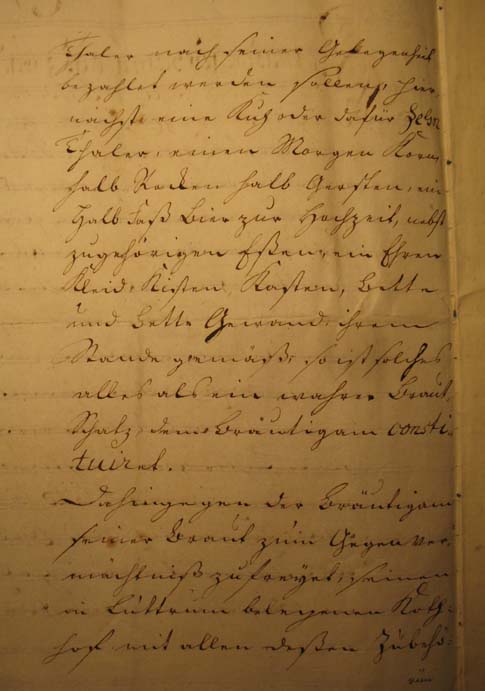 Thaler nach seiner Gelegenheit
bezahlet werden sollen, hier
nächst eine Kuh oder dafür Zehn
Thaler, einen Morgen Korn,
halb Rocken halb Gersten, ein
halb Faß Bier zur Hochzeit, nebst
zugehörigen Eßen, ein Ehren
Kleid, Kisten, Kasten, Bette
und Bette Gewand, ihrem
Stande gemäß, so ist solches
alles als ein wahrer Braut
Schatz dem Bräutigam consti-
tuiret.
Dahingegen der Bräutigam
seiner Braut zum Gegenver-
mächtniß zufreyet, seinen
in Luttrum belegenen Koth-
hof mit allen deßen Zubehö-